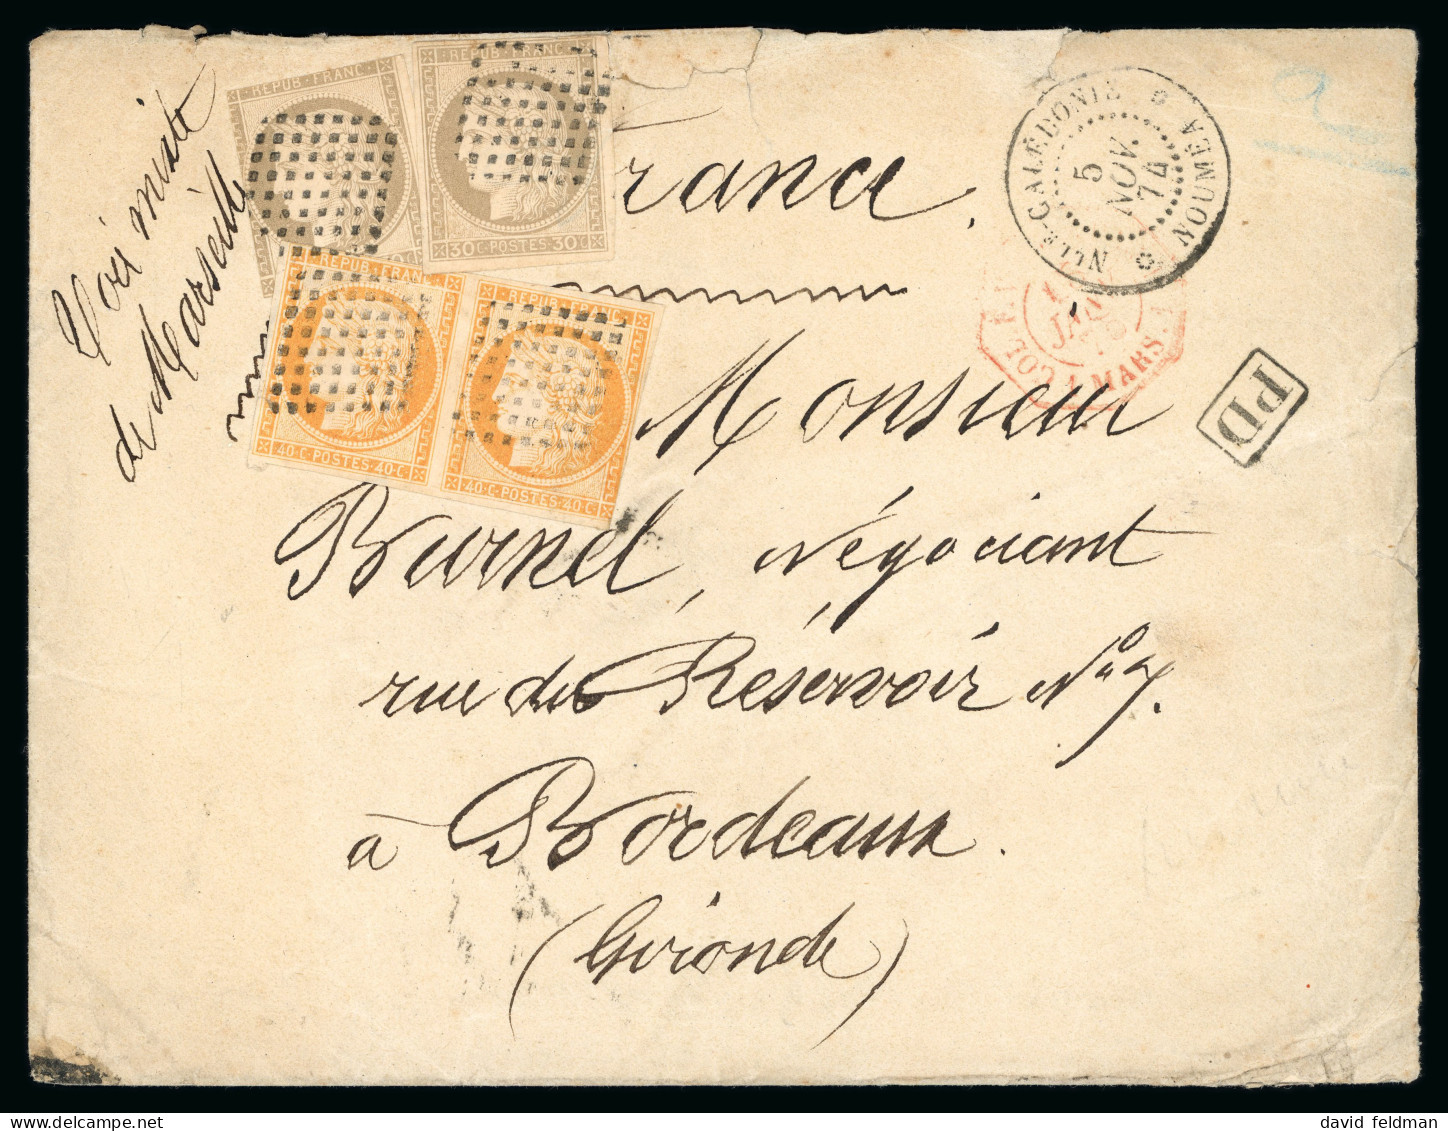 Voie mixte
de Marseille
REPUB·FRANC·
REPUB·FRANC·
30·C·POSTES·30·C
REPUB·FRANC·
40·C·POSTES·40·C
REPUB·FRANC·
40·C·POSTES·40·C
NLLE-CALEDONIE
NOUMEA
5
NOV.
74
France.
COL. FR.
JAN
MARS.
PD
Monsieur
Burnel, Négociant
rue du Réservoir No 7.
à Bordeaux.
(Gironde)
david feldman